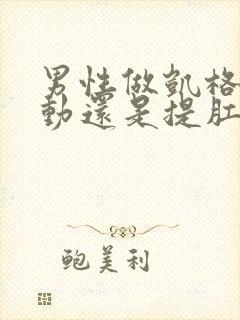 男性做凱格
動還是提肛
鲍美利